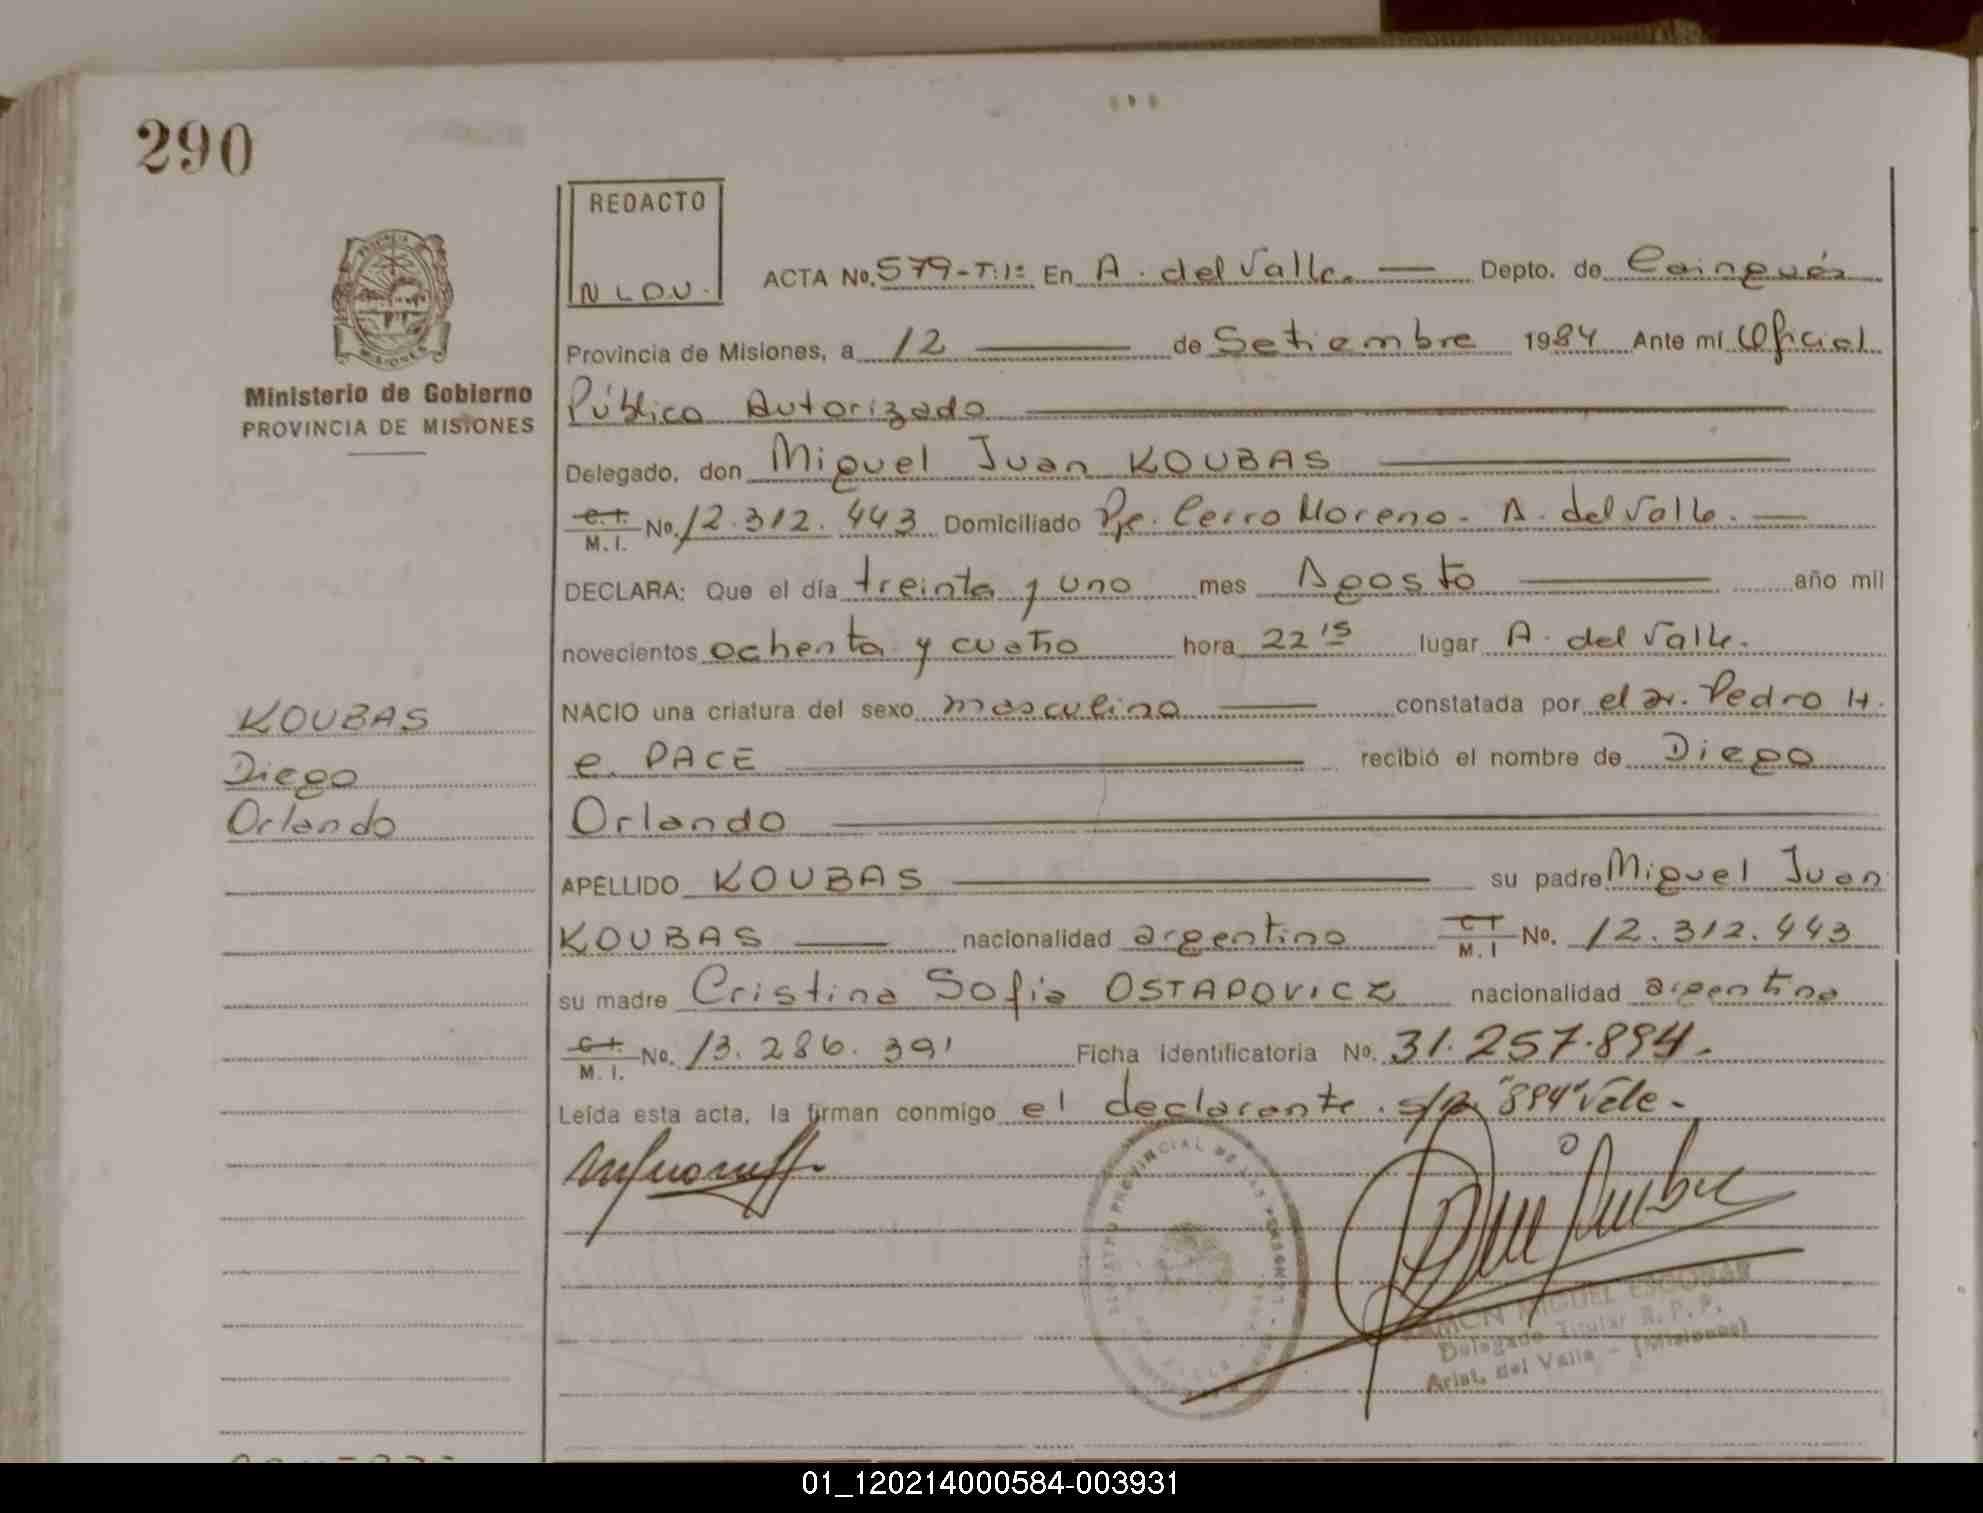 290
REDACTO
N L D U.
ACTA No. 579-T:1º En A. del Valle. Depto. de Cainguás
Provincia de Misiones, a 12 de Setiembre 1984 Ante mí Oficial
Ministerio de Gobierno
PROVINCIA DE MISIONES
Público Autorizado
Delegado, don Miguel Juan KOUBAS
C.I. M.I. No. 12.312.443 Domiciliado Pje. Cerro Moreno - A. del Valle.
DECLARA: Que el día treinta y uno mes Agosto año mil
novecientos ochenta y cuatro hora 22 15 lugar A. del Valle.
KOUBAS
Diego
Orlando
NACIO una criatura del sexo masculino constatada por el Dr. Pedro H.
e. PACE recibió el nombre de Diego
Orlando
APELLIDO KOUBAS su padre Miguel Juan
KOUBAS nacionalidad argentino C I M.I No. 12.312.443
su madre Cristina Sofia OSTAPOVICZ nacionalidad argentina
C.I. M.I. No. 13.286.391 Ficha identificatoria No. 31.257.894.
Leída esta acta, la firman conmigo el declarante. s/r "894" Vale-
REGISTRO PROVINCIAL DE LAS PERSONAS
RAMON MIGUEL ESCOBAR
Delegado Titular R. P. P.
Arist. del Valle - (Misiones)
01_120214000584-003931